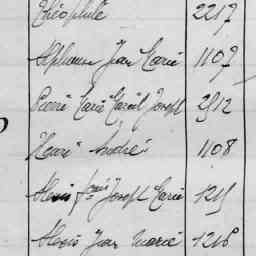 Théophile 2217
Alphonse Jean Marie 1107
Pierre Marie Joseph 2912
Henri André 1108
Alexis Joseph Marie
Alexis Jean Marie 1216